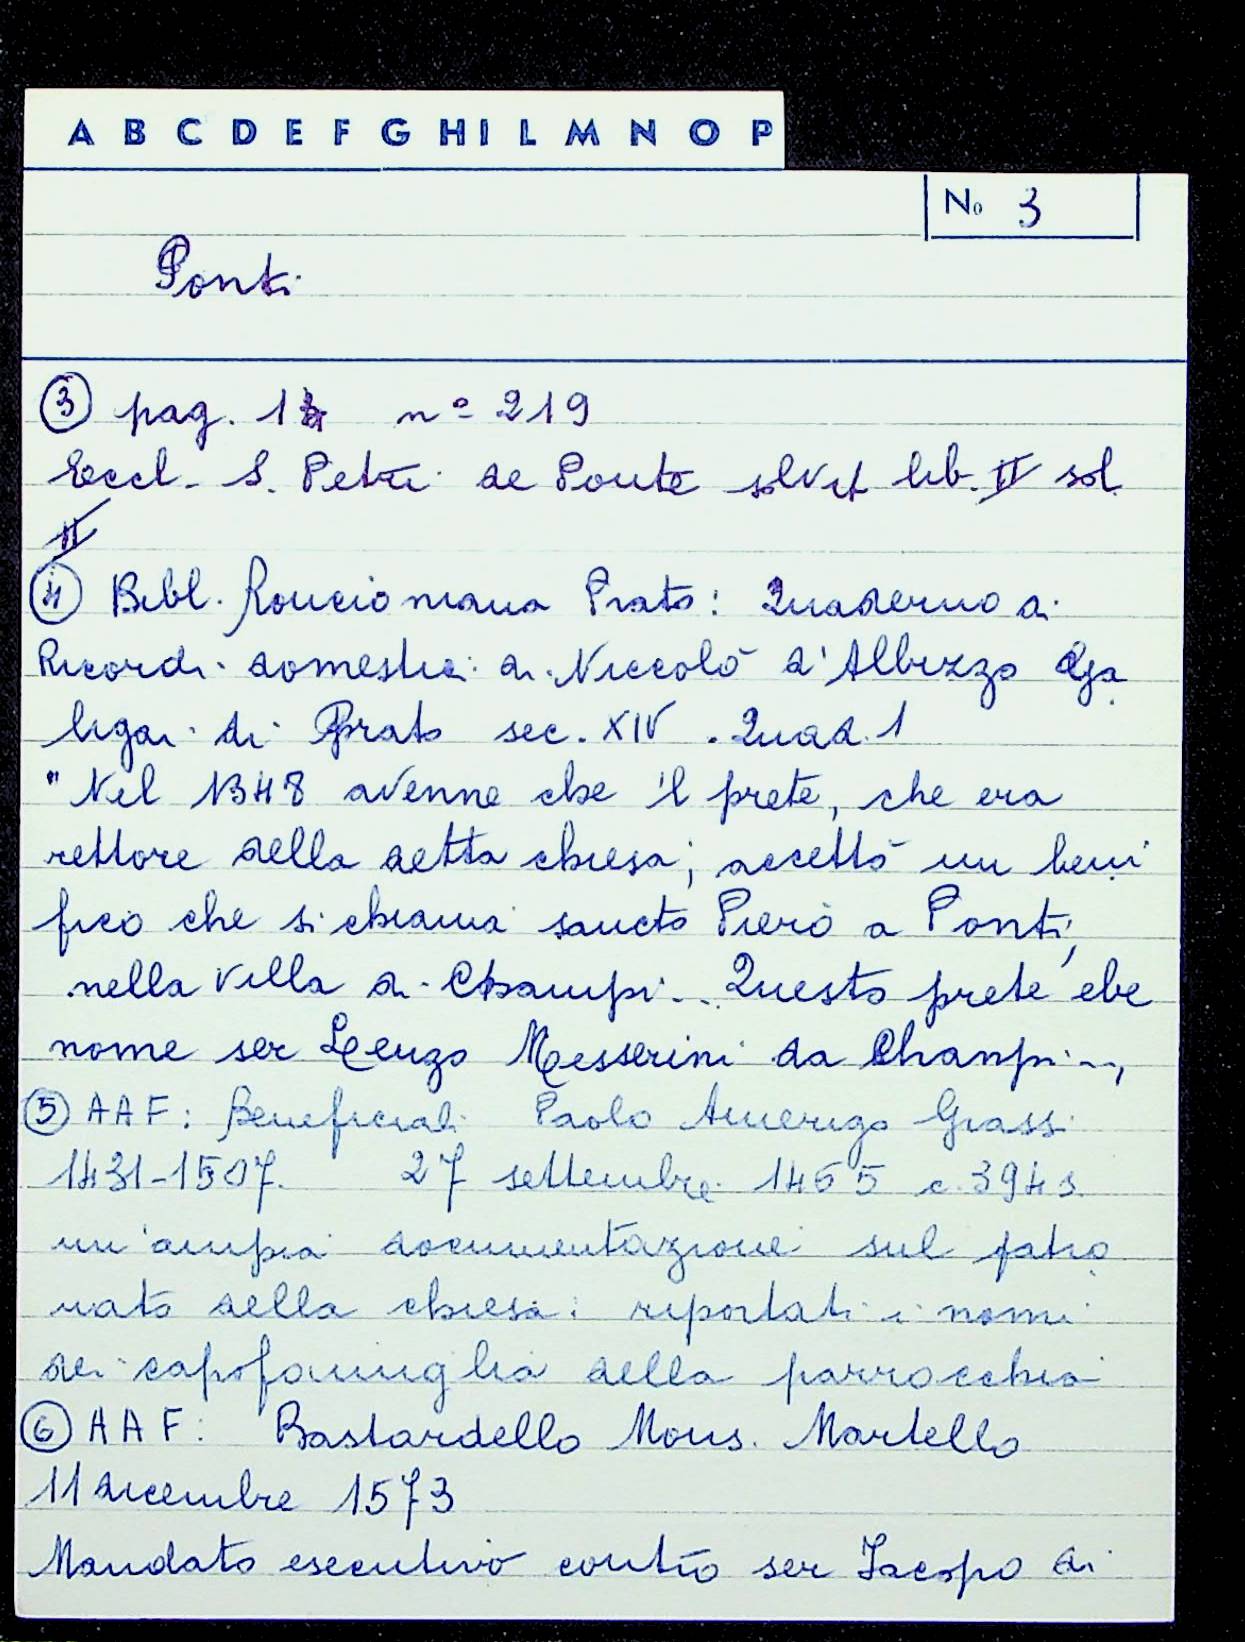 A B C D E F G H I L M N O P
No 3
Ponti
③ pag. 1 n° 219
Eccl. S. Petri de Ponte solvit lib. II sol.
II
④ Bibl. Roncioniana Prato: Quaderno di
Ricordi domestici di Niccolò d'Albizzo
ligai di Prato sec. XIV. Quad. 1
"Nel 1348 avenne che il prete, che era
rettore della detta chiesa; accettò un beni
fico che si chiama sancto Piero a Ponti,
nella villa di Champi... Questo prete ebe
nome ser Lenzo Messerini da Chanpi...,
⑤ AAF: Beneficiali Paolo Amerigo Grassi
1431-1507. 27 settembre 1465 c. 394 s.
un'ampia documentazione sul patro
nato della chiesa: riportati i nomi
dei capofamiglia della parrocchia
⑥ AAF: Bastardello Mons. Martello
11 dicembre 1573
Mandato esecutivo contro ser Jacopo di